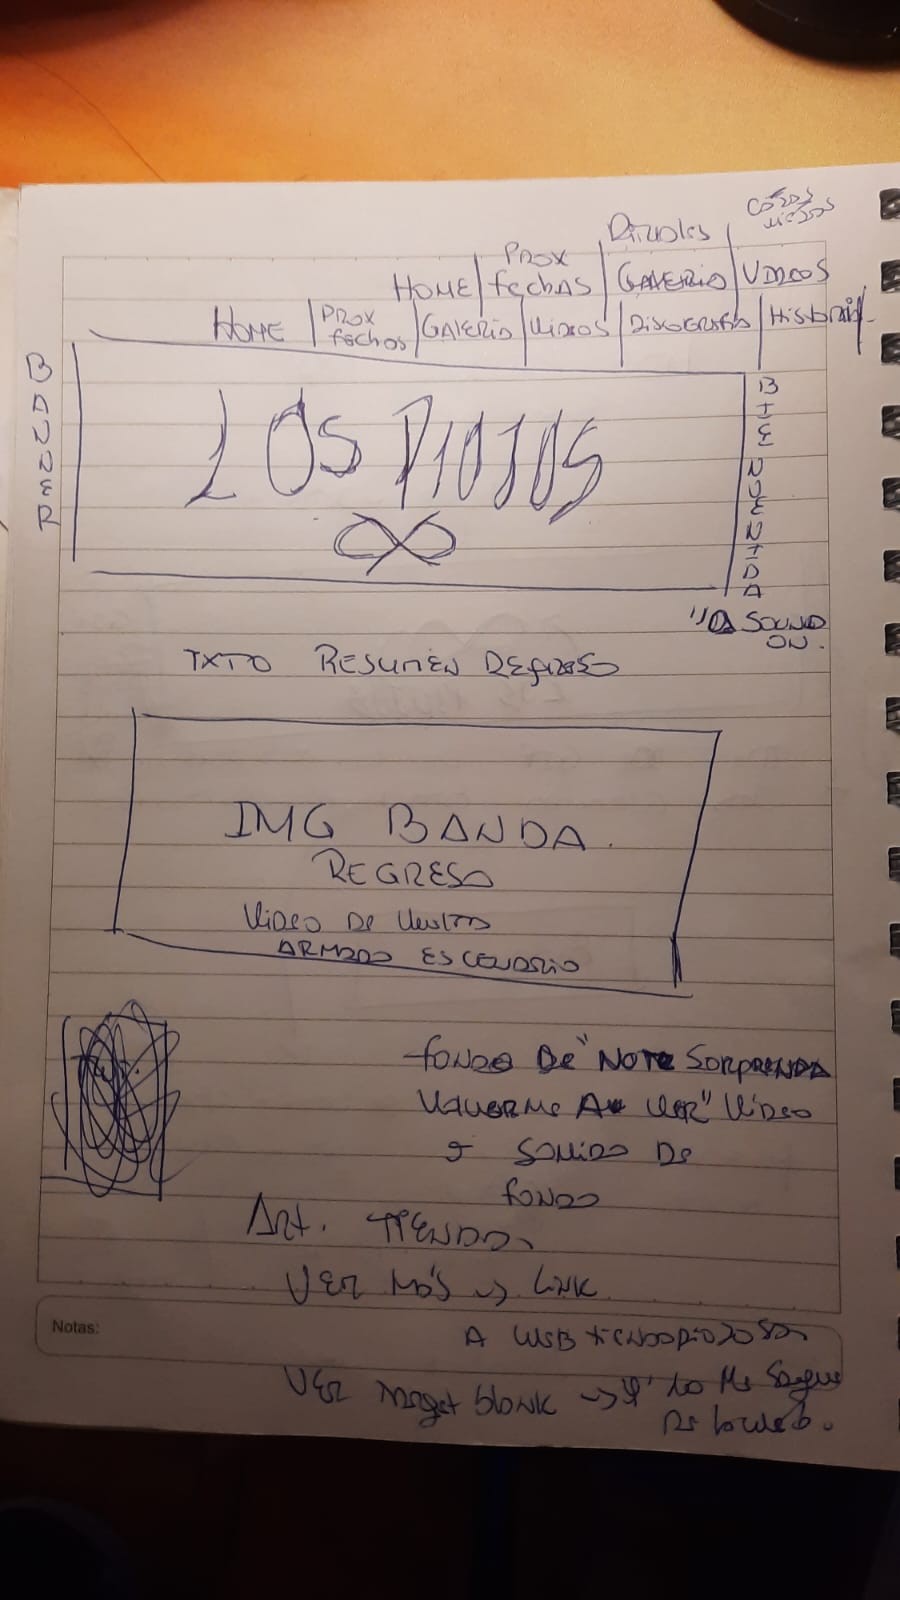 COSAS
VIEJAS
HOME | PROX fechas | GALERIA | VIDEOS
HOME | PROX fechas | GALERIA | VIDEOS | DISCOGRAFIA | Historia
BANNER
LOS PIOJOS
∞
BIENVENIDA
SOUND
ON.
TXTO RESUMEN REGRESO
IMG BANDA.
REGRESO
VIDEO DE
ARMADO ESCENARIO
FONDO DE "NO TE SORPRENDA
VOLVERME A VER" VIDEO
SONIDO DE
FONDO
Art. TIENDA
VER MÁS → LINK
Notas:
A WEB tiendapiojosa
VER target blank → q' no me saque
de la web.